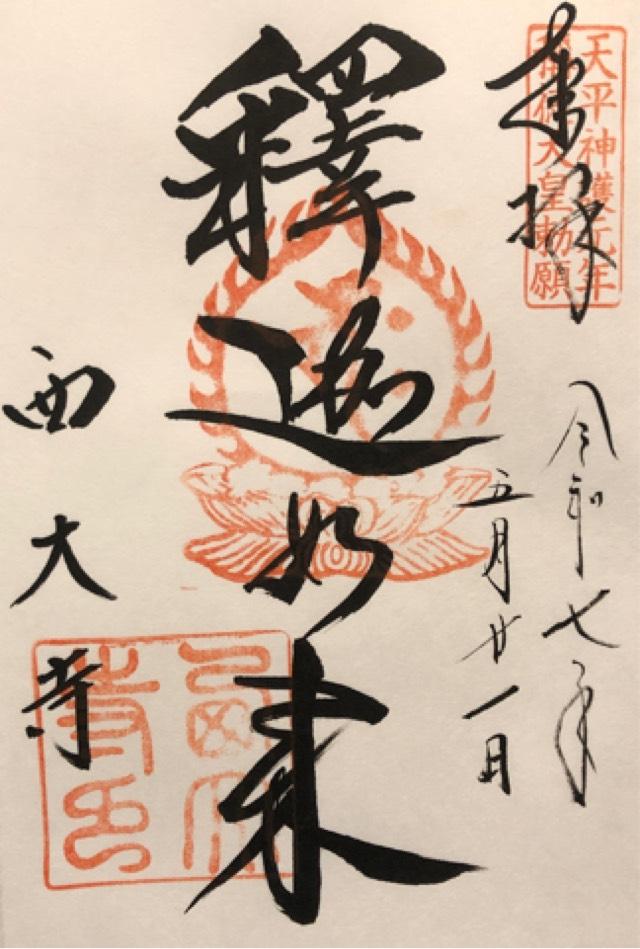 天平神護元年
称徳天皇勅願
奉拝
令和七年
五月廿一日
釋迦如来
西大寺
西大
寺印